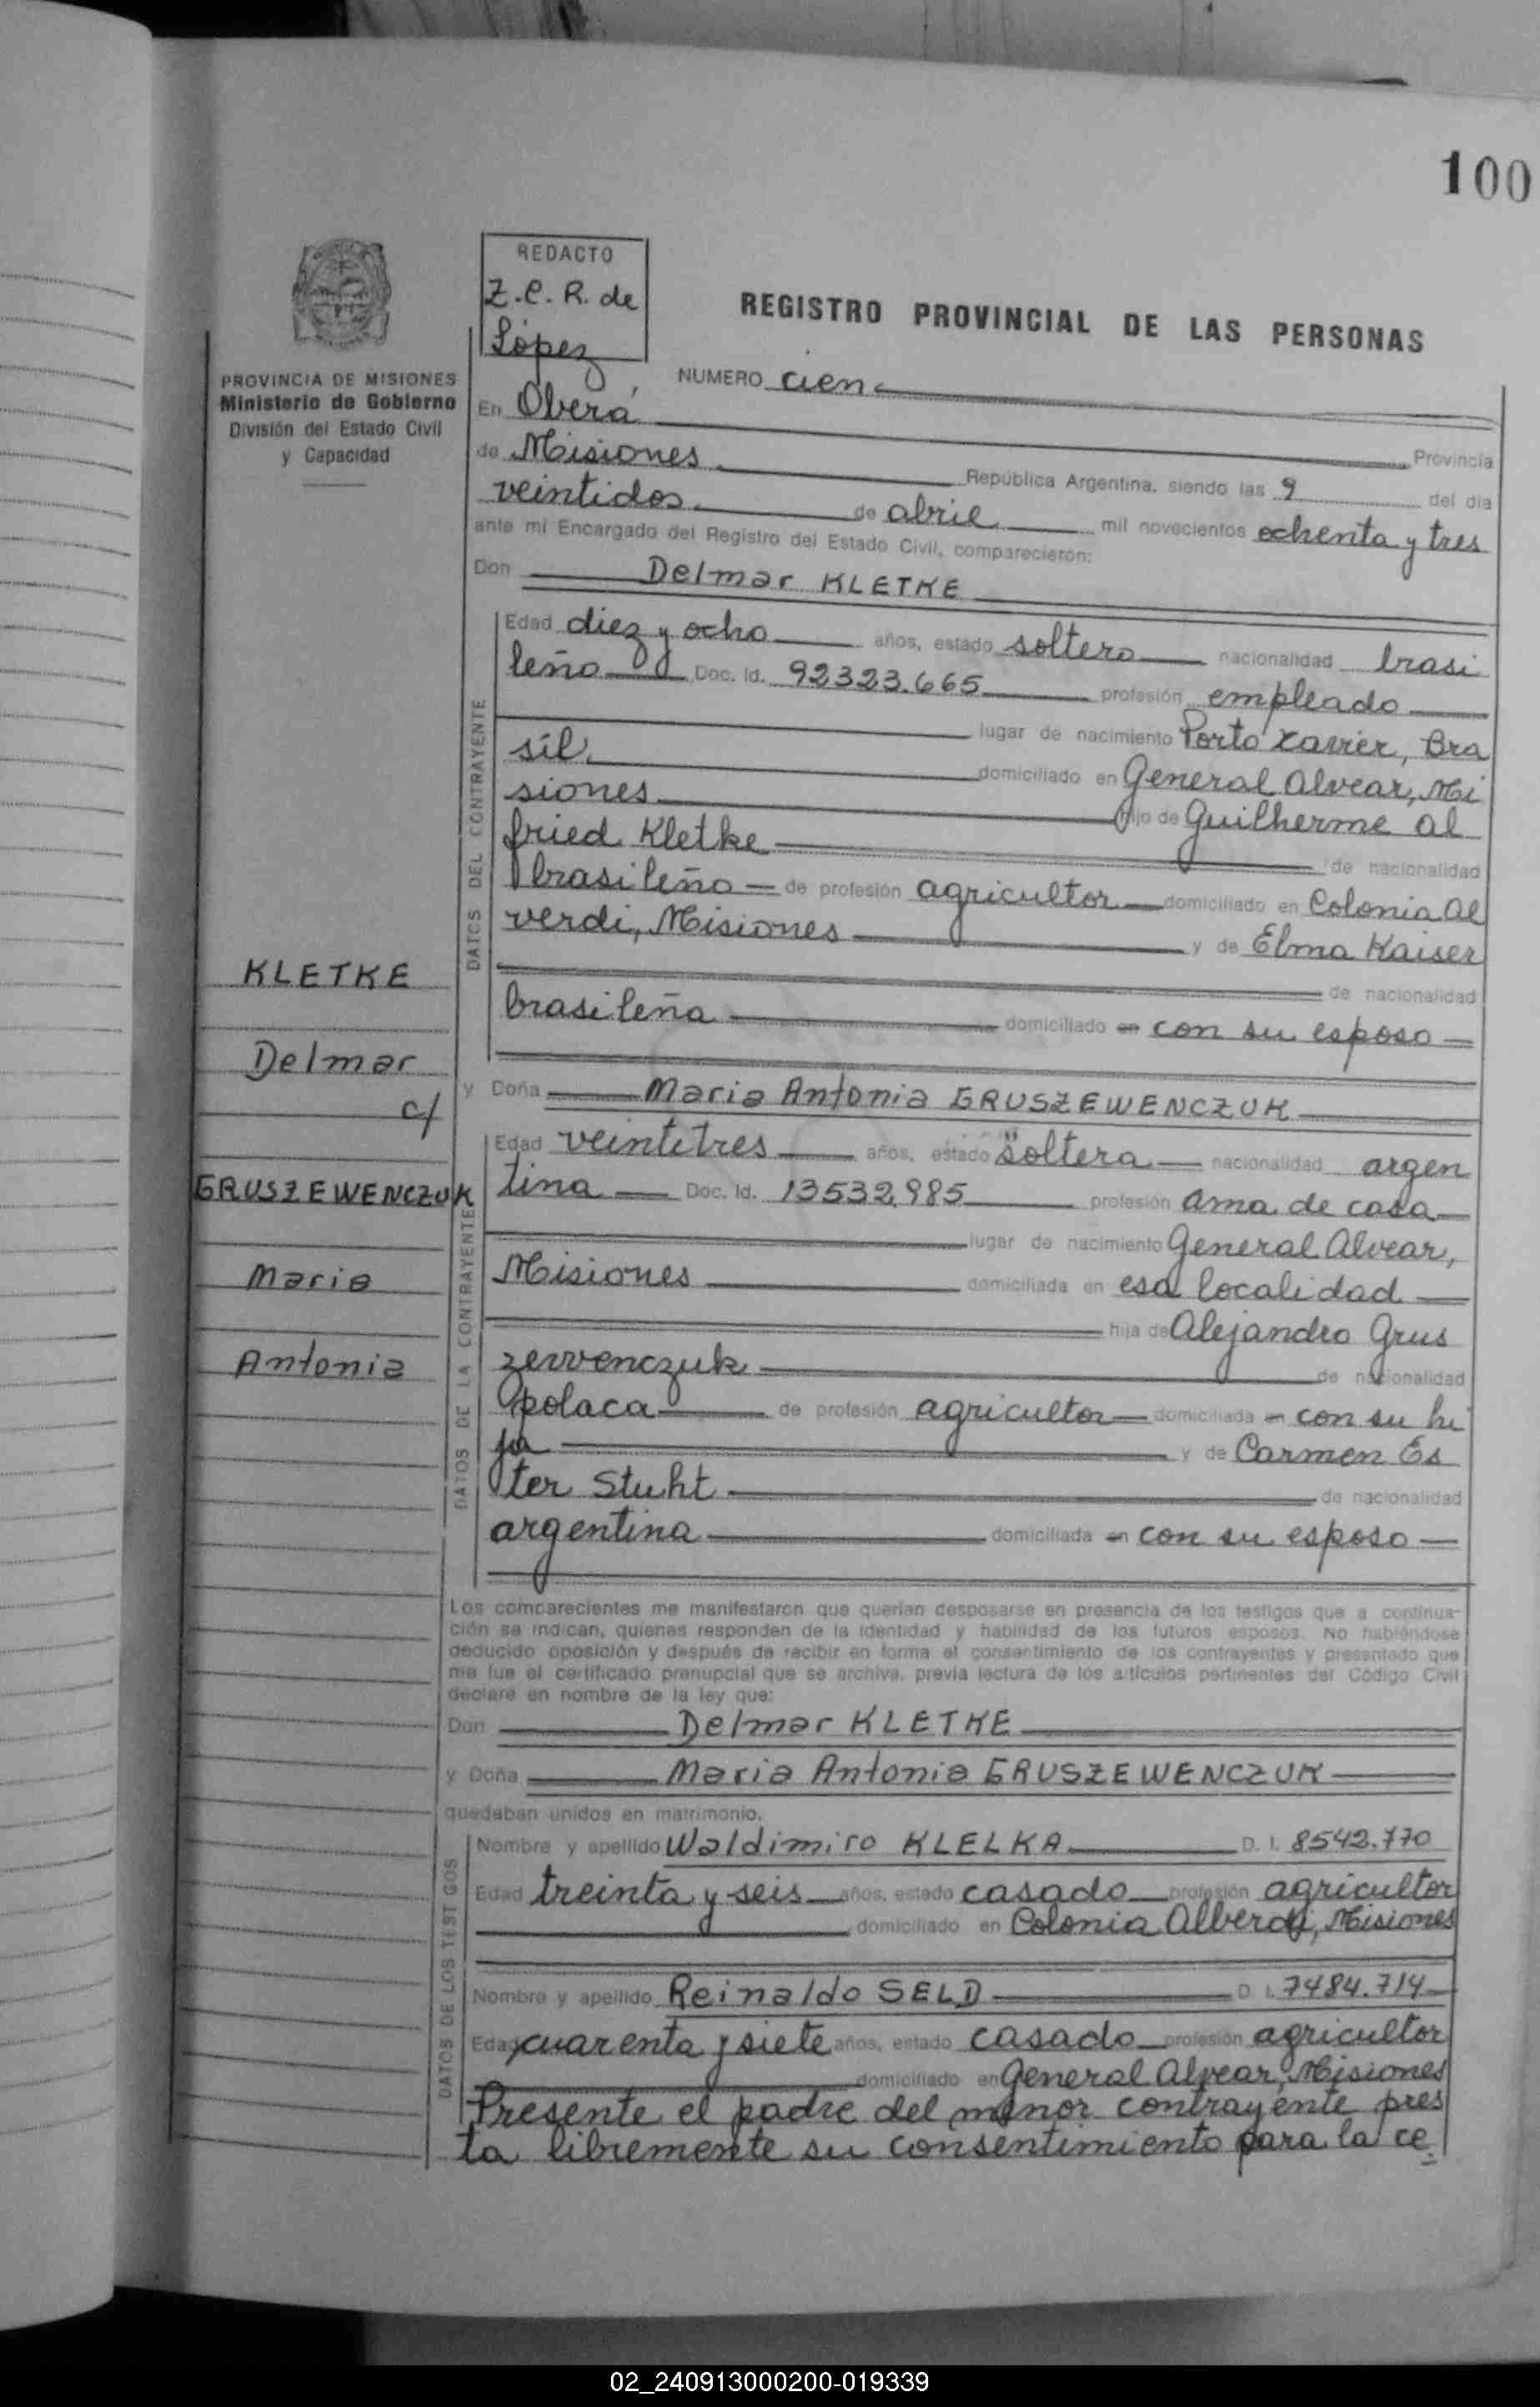 100
REDACTO
Z.C.R. de
López
REGISTRO PROVINCIAL DE LAS PERSONAS
PROVINCIA DE MISIONES
Ministerio de Gobierno
División del Estado Civil
y Capacidad
NUMERO cien
En Oberá Provincia
de Misiones República Argentina, siendo las 9 del día
veintidos de abril mil novecientos ochenta y tres
ante mí Encargado del Registro del Estado Civil, comparecieron:
Don Delmar KLETKE
DATOS DEL CONTRAYENTE
Edad diez y ocho años, estado soltero nacionalidad brasi
leño Doc. Id. 92323.665 profesión empleado
lugar de nacimiento Porto Xavier, Bra
sil domiciliado en General Alvear, Mi
siones hijo de Guilherme Al
fried Kletke de nacionalidad
brasileño de profesión agricultor domiciliado en Colonia Al
verdi, Misiones y de Elma Kaiser
de nacionalidad
brasileña domiciliado en con su esposo
KLETKE
Delmar
c/
GRUSZEWENCZUK
Maria
Antonia
y Doña Maria Antonia GRUSZEWENCZUK
DATOS DE LA CONTRAYENTE
Edad veintetres años, estado soltera nacionalidad argen
tina Doc. Id. 13532.985 profesión ama de casa
lugar de nacimiento General Alvear,
Misiones domiciliada en esa localidad
hija de Alejandro Grus
zewenczuk de nacionalidad
polaca de profesión agricultor domiciliada en con su hi
ja y de Carmen Es
ter Stuht de nacionalidad
argentina domiciliada en con su esposo
Los comparecientes me manifestaron que querían desposarse en presencia de los testigos que a continua-
ción se indican, quienes responden de la identidad y habilidad de los futuros esposos. No habiéndose
deducido oposición y después de recibir en forma el consentimiento de los contrayentes y presentado que
me fue el certificado prenupcial que se archiva, previa lectura de los artículos pertinentes del Código Civil
declaré en nombre de la ley que:
Don Delmar KLETKE
y Doña Maria Antonia GRUSZEWENCZUK
quedaban unidos en matrimonio.
DATOS DE LOS TESTIGOS
Nombre y apellido Waldimiro KLELKA D. I. 8542.770
Edad treinta y seis años, estado casado profesión agricultor
domiciliado en Colonia Alberdi, Misiones
Nombre y apellido Reinaldo SELD D. I. 7484.714
Edad cuarenta y siete años, estado casado profesión agricultor
domiciliado en General Alvear, Misiones
Presente el padre del menor contrayente pres
ta libremente su consentimiento para la ce
02_240913000200-019339